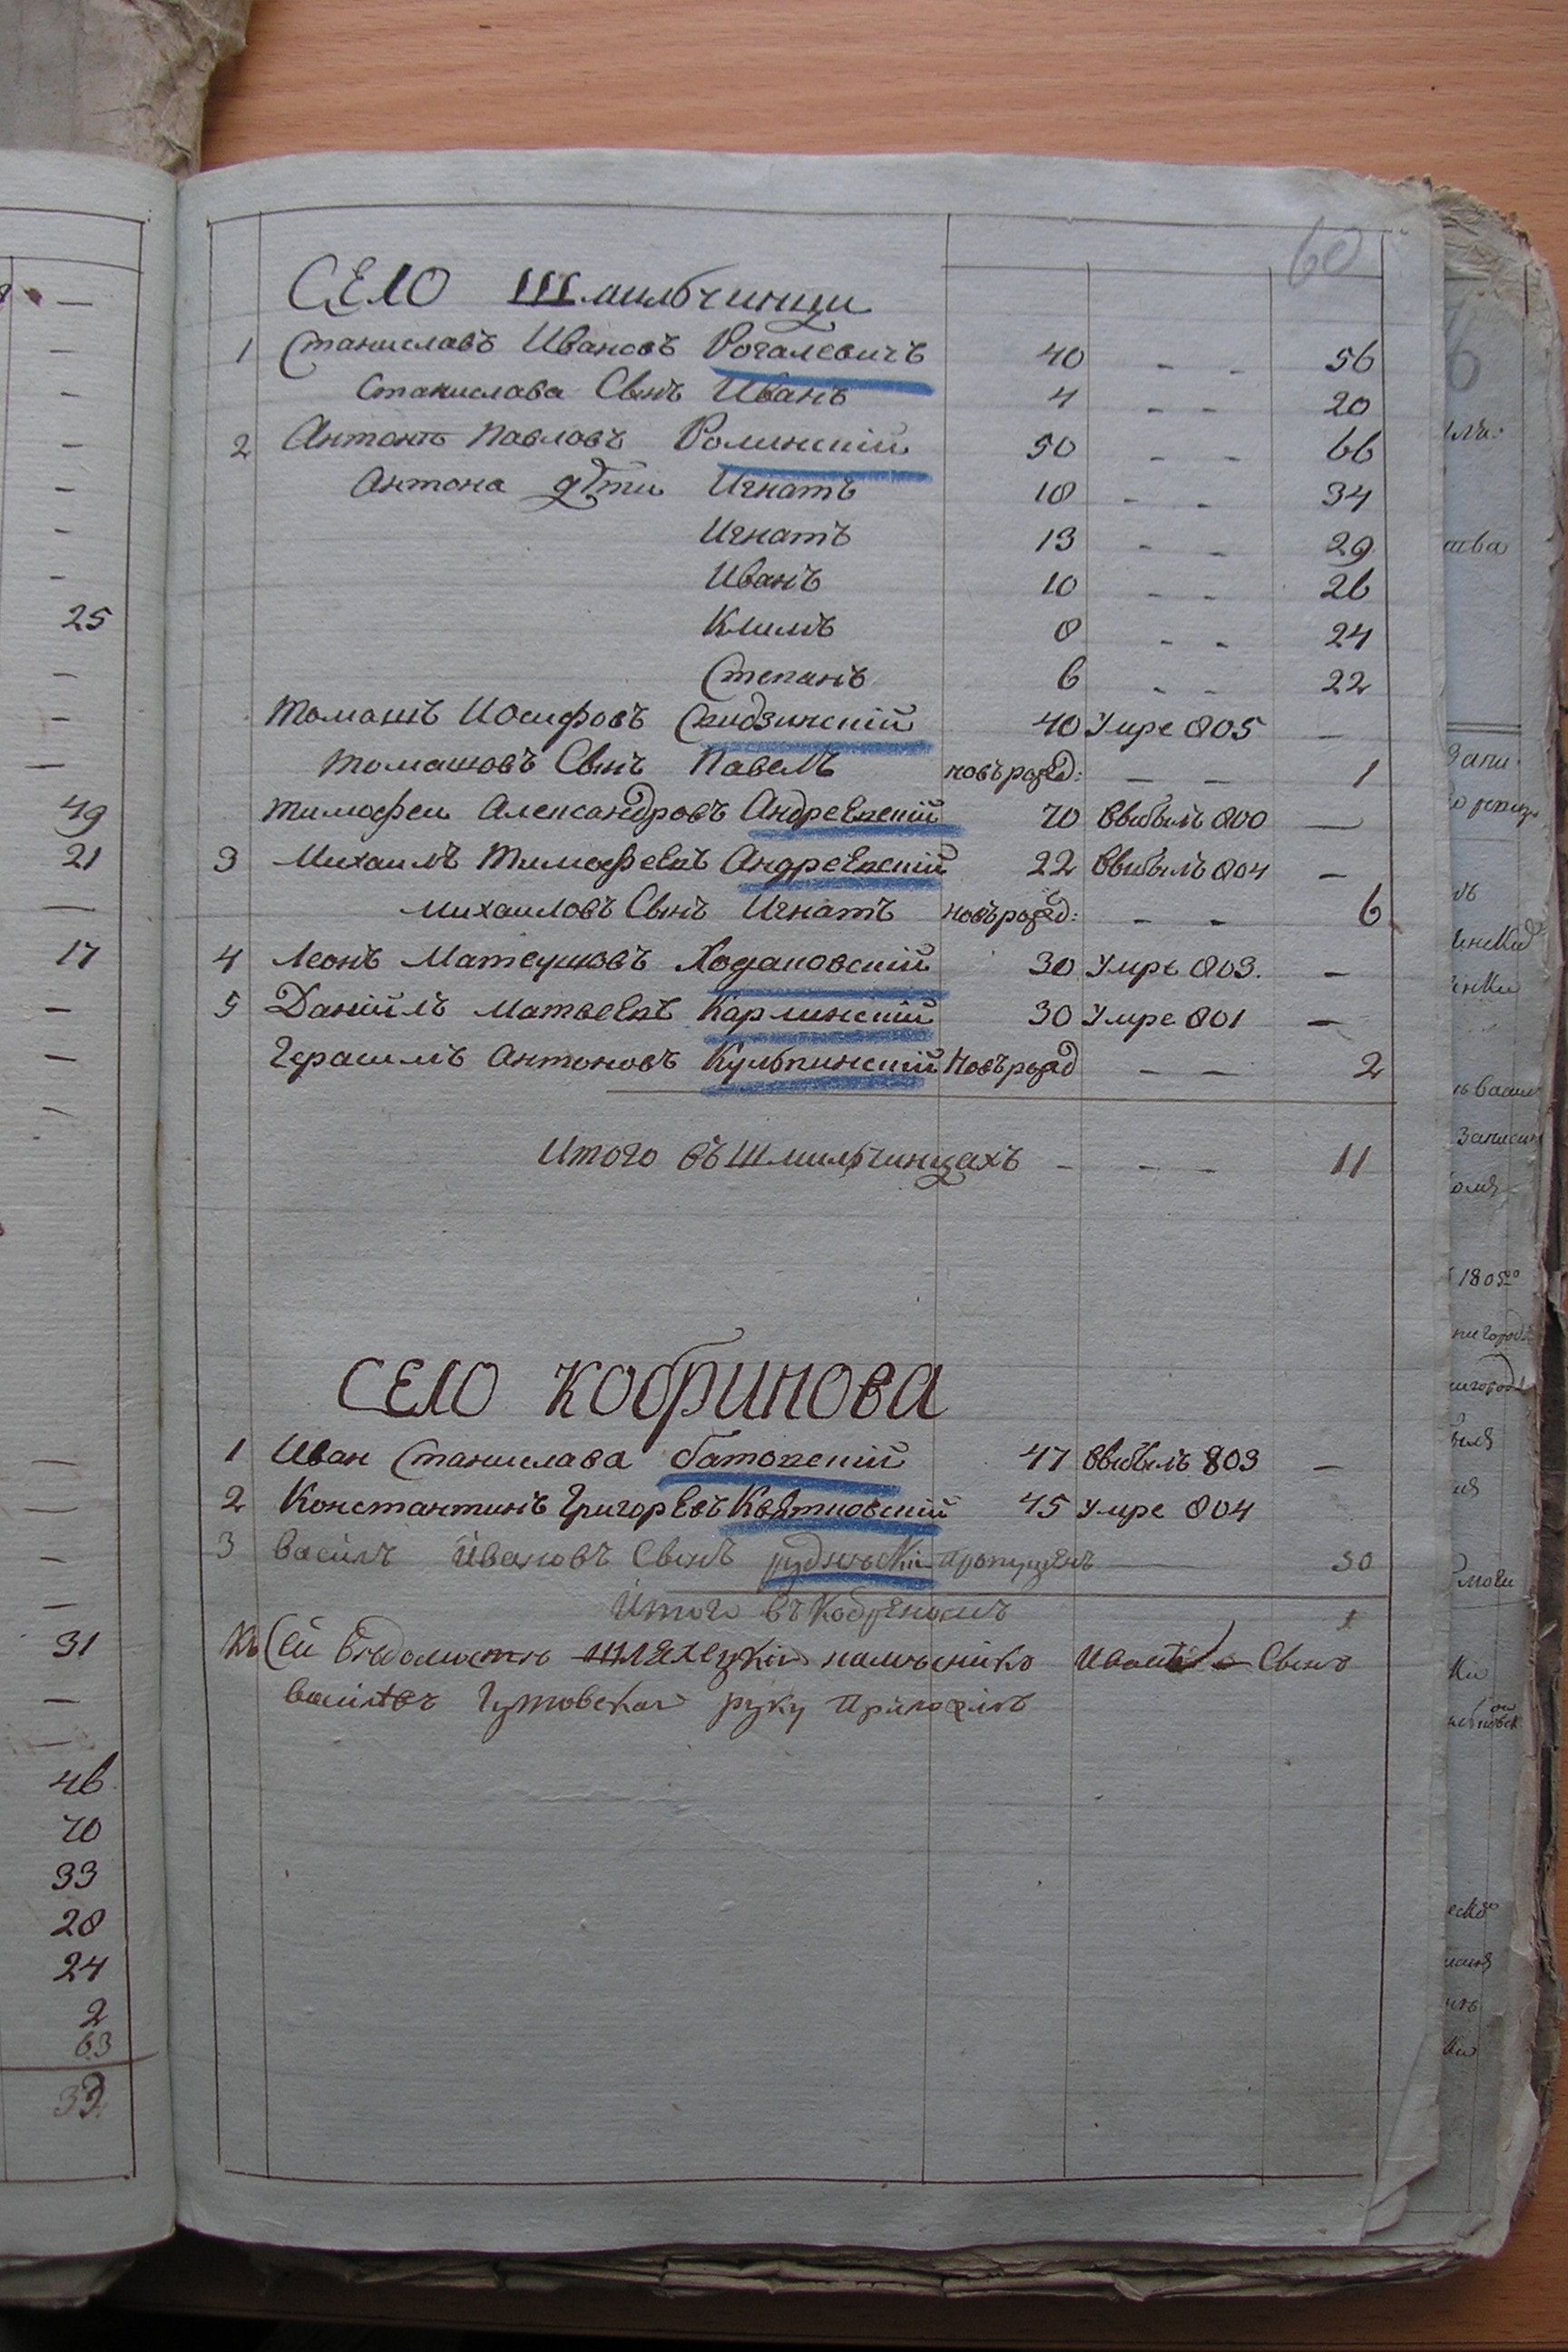 60
СЕЛО Шмильчинци
1 Станиславъ Ивановъ Рогалевичъ 40 - - 56
Станислава Сынъ Иванъ 4 - - 20
2 Антонъ Павловъ Ролинскій 50 - - 66
Антона дѣти Игнатъ 18 - - 34
Игнатъ 13 - - 29
Иванъ 10 - - 26
Климъ 8 - - 24
Степанъ 6 - - 22
Томашъ Иосифовъ Скидзинскій 40 Умре 805 —
Томашовъ Сынъ Павелъ новърожд: — — 1
Тимофеи Александровъ Андреевский 70 Выбылъ 800 —
3 Михаилъ Тимофеевъ Андреевский 22 Выбылъ 804 —
Михаиловъ Сынъ Игнатъ новърожд: - - 6
4 Леонъ Матеушовъ Ходаковскій 30 Умре 803. —
5 Даніилъ Матвеевъ Карлинскій 30 Умре 801 —
Герасимъ Антоновъ Кульпинскій Новърожд — — 2
Итого въ Шмильчинцахъ - - - 11
СЕЛО КОБРИНОВА
1 Иван Станислава Батовский 47 Выбылъ 803 —
2 Константинъ Григоревъ Квятковский 45 Умре 804
3 Василъ Ивановъ Сынъ пропущенъ — 30
Итого въ 1
Къ Сей Вѣдомости Шляхецкій намѣсніко Сынъ
Гутовскій руку приложилъ
25
49
21
17
31
46
70
33
28
24
2
63
1805